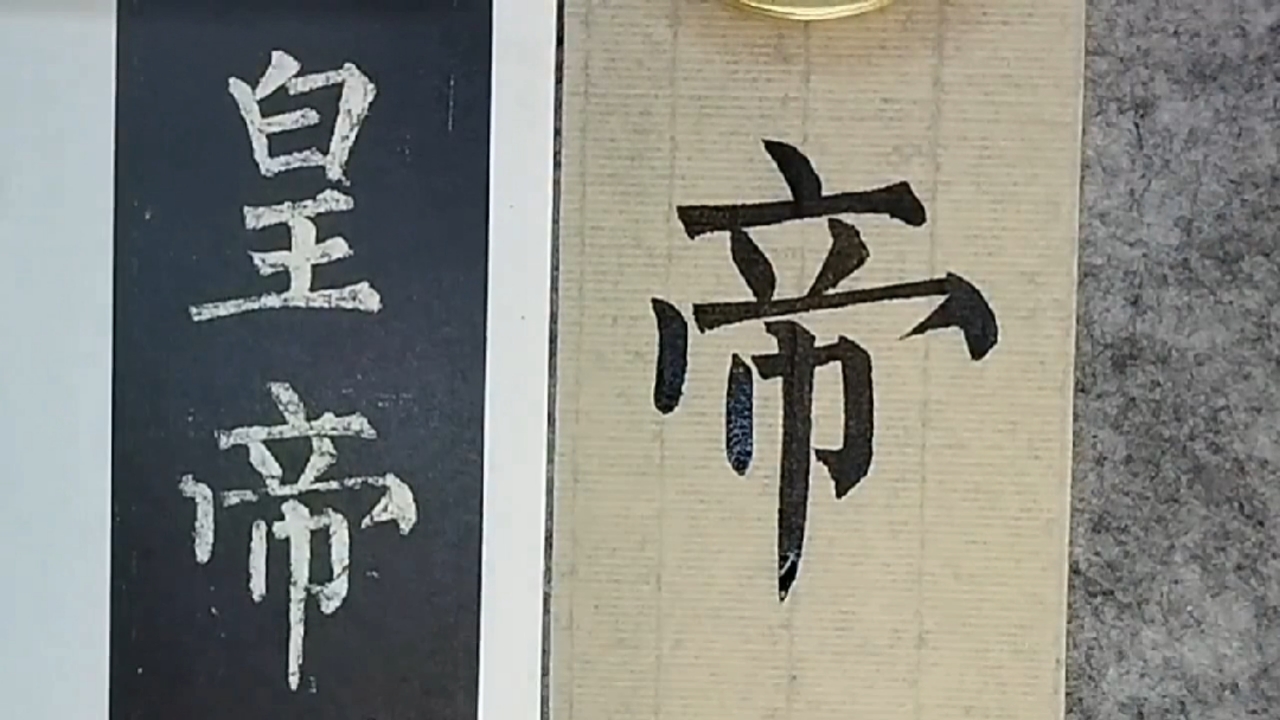 皇帝
帝